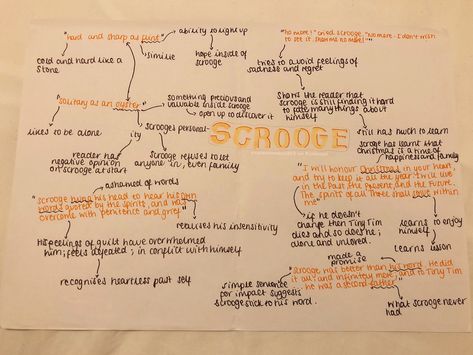 "hard and sharp as flint"
ability to light up
simile
hope inside of scrooge
cold and hard like a
stone
"solitary as an oyster"
something precious and
valuable inside scrooge
open up to discover it
likes to be alone
Scrooges personal-
ity
reader has
negative opinion
of scrooge at start
Scrooge refuses to let
anyone in, even family
SCROOGE
"no more!" cried scrooge. "No more. I don't wish
to see it. Show me no more!"
tries to avoid feelings of
sadness and regret
Shows the reader that
scrooge is still finding it hard
to face many things about
himself
still has much to learn
scrooge has learnt that
Christmas is a time of
happiness and family
"I will honour Christmas in your heart
and try to keep it all the year. I will live
in the Past the Present, and the Future.
The spirits of all Three shall serve within
me"
if he doesn't
change then Tiny Tim
dies and so does he;
alone and unloved.
learns to enjoy
himself
learns lesson
ashamed of words
"Scrooge hung his head to hear his own
words quoted by the spirit, and was
overcome with penitence and grief"
realises his insensitivity
His feelings of guilt have overwhelmed
him; feels defeated; in conflict with himself
recognises heartless past self
made a
promise
"Scrooge was better than his word. He did
it all and infinitely more; and to Tiny Tim
he was a second father"
simple sentence
for impact suggests
scrooge stuck to his word.
what scrooge never
had